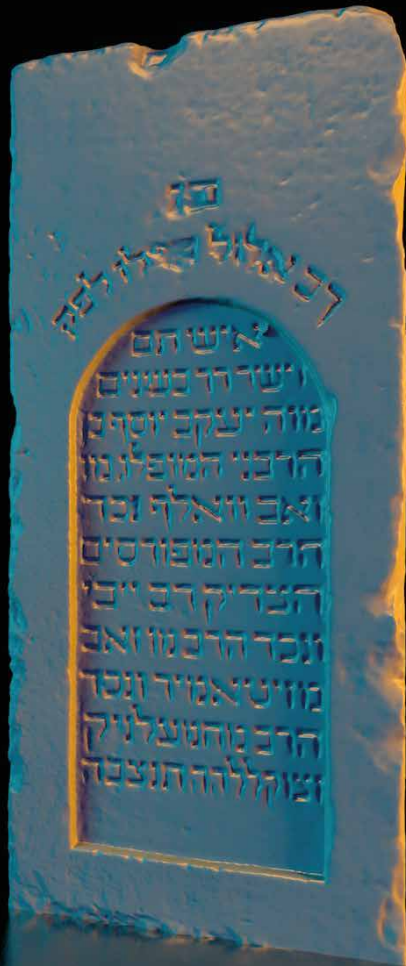 פן
כב אלול לפק
איש תם
וישר רך בשנים
מוה יעקב יוסף בן
הרבני המופלג מו
זאב וואלף נכד
הרב המפורסים
הצדיק רב ייבי
ונכד הרב מו זאב
מזיטאמיר ונכד
הרב מחמעלניק
זצוקללהה תנצבה